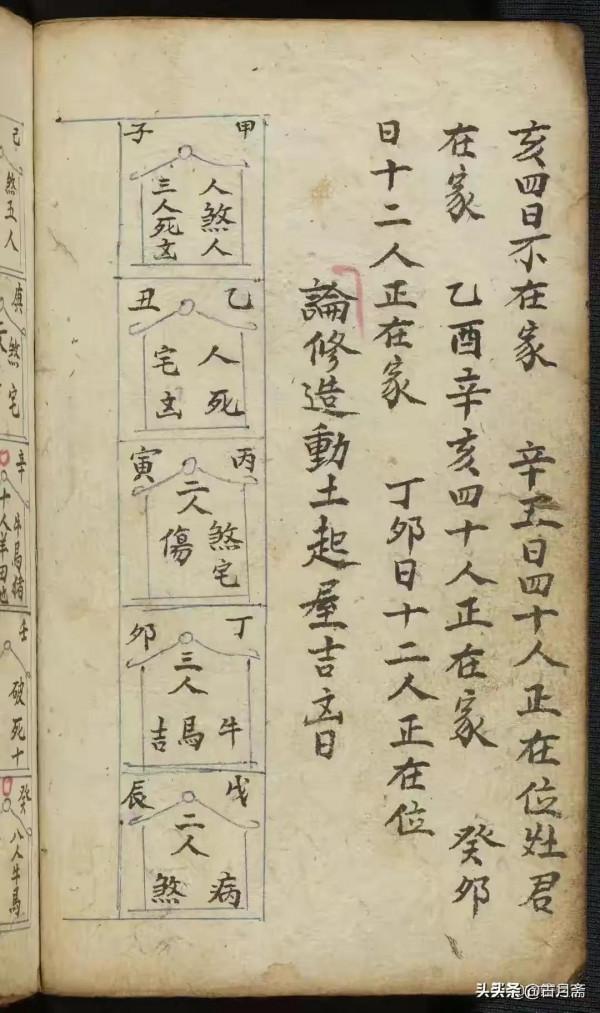 亥四日不在家 辛丑日四十人正在位灶君
在家 乙酉辛亥四十人正在家 癸卯
日十二人正在家 丁卯日十二人正在位
論修造動土起屋吉凶日
甲子
人煞人
三人死凶
乙丑
人死
宅凶
丙寅
煞宅
二人
傷
丁卯
三人
牛馬吉
戊辰
二人
病煞
己
煞五人
庚
煞宅
辛
牛馬猪
十人羊田地
壬
破死十
癸
八人牛馬
头条 @古月斋